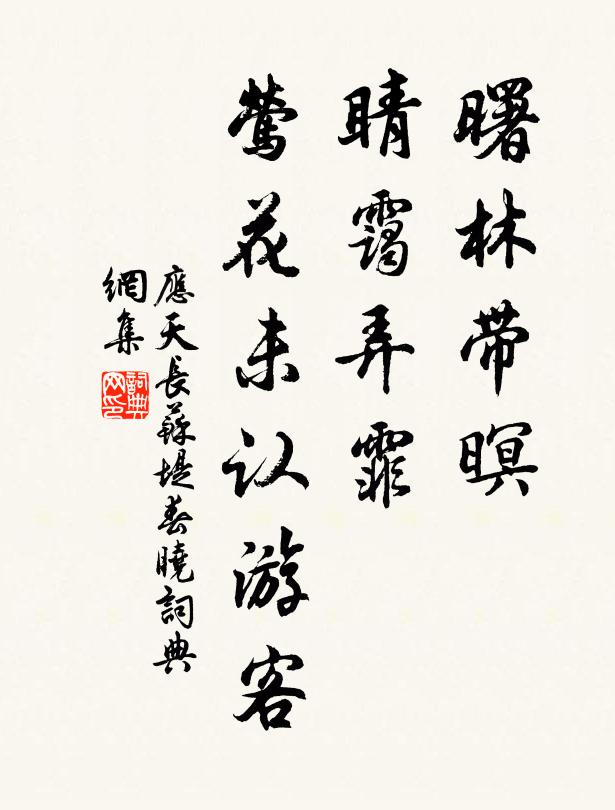 曙林带暝
晴霭弄霏
莺花未认游客
應天長蘇堤春曉詞典
網集
詞典网印